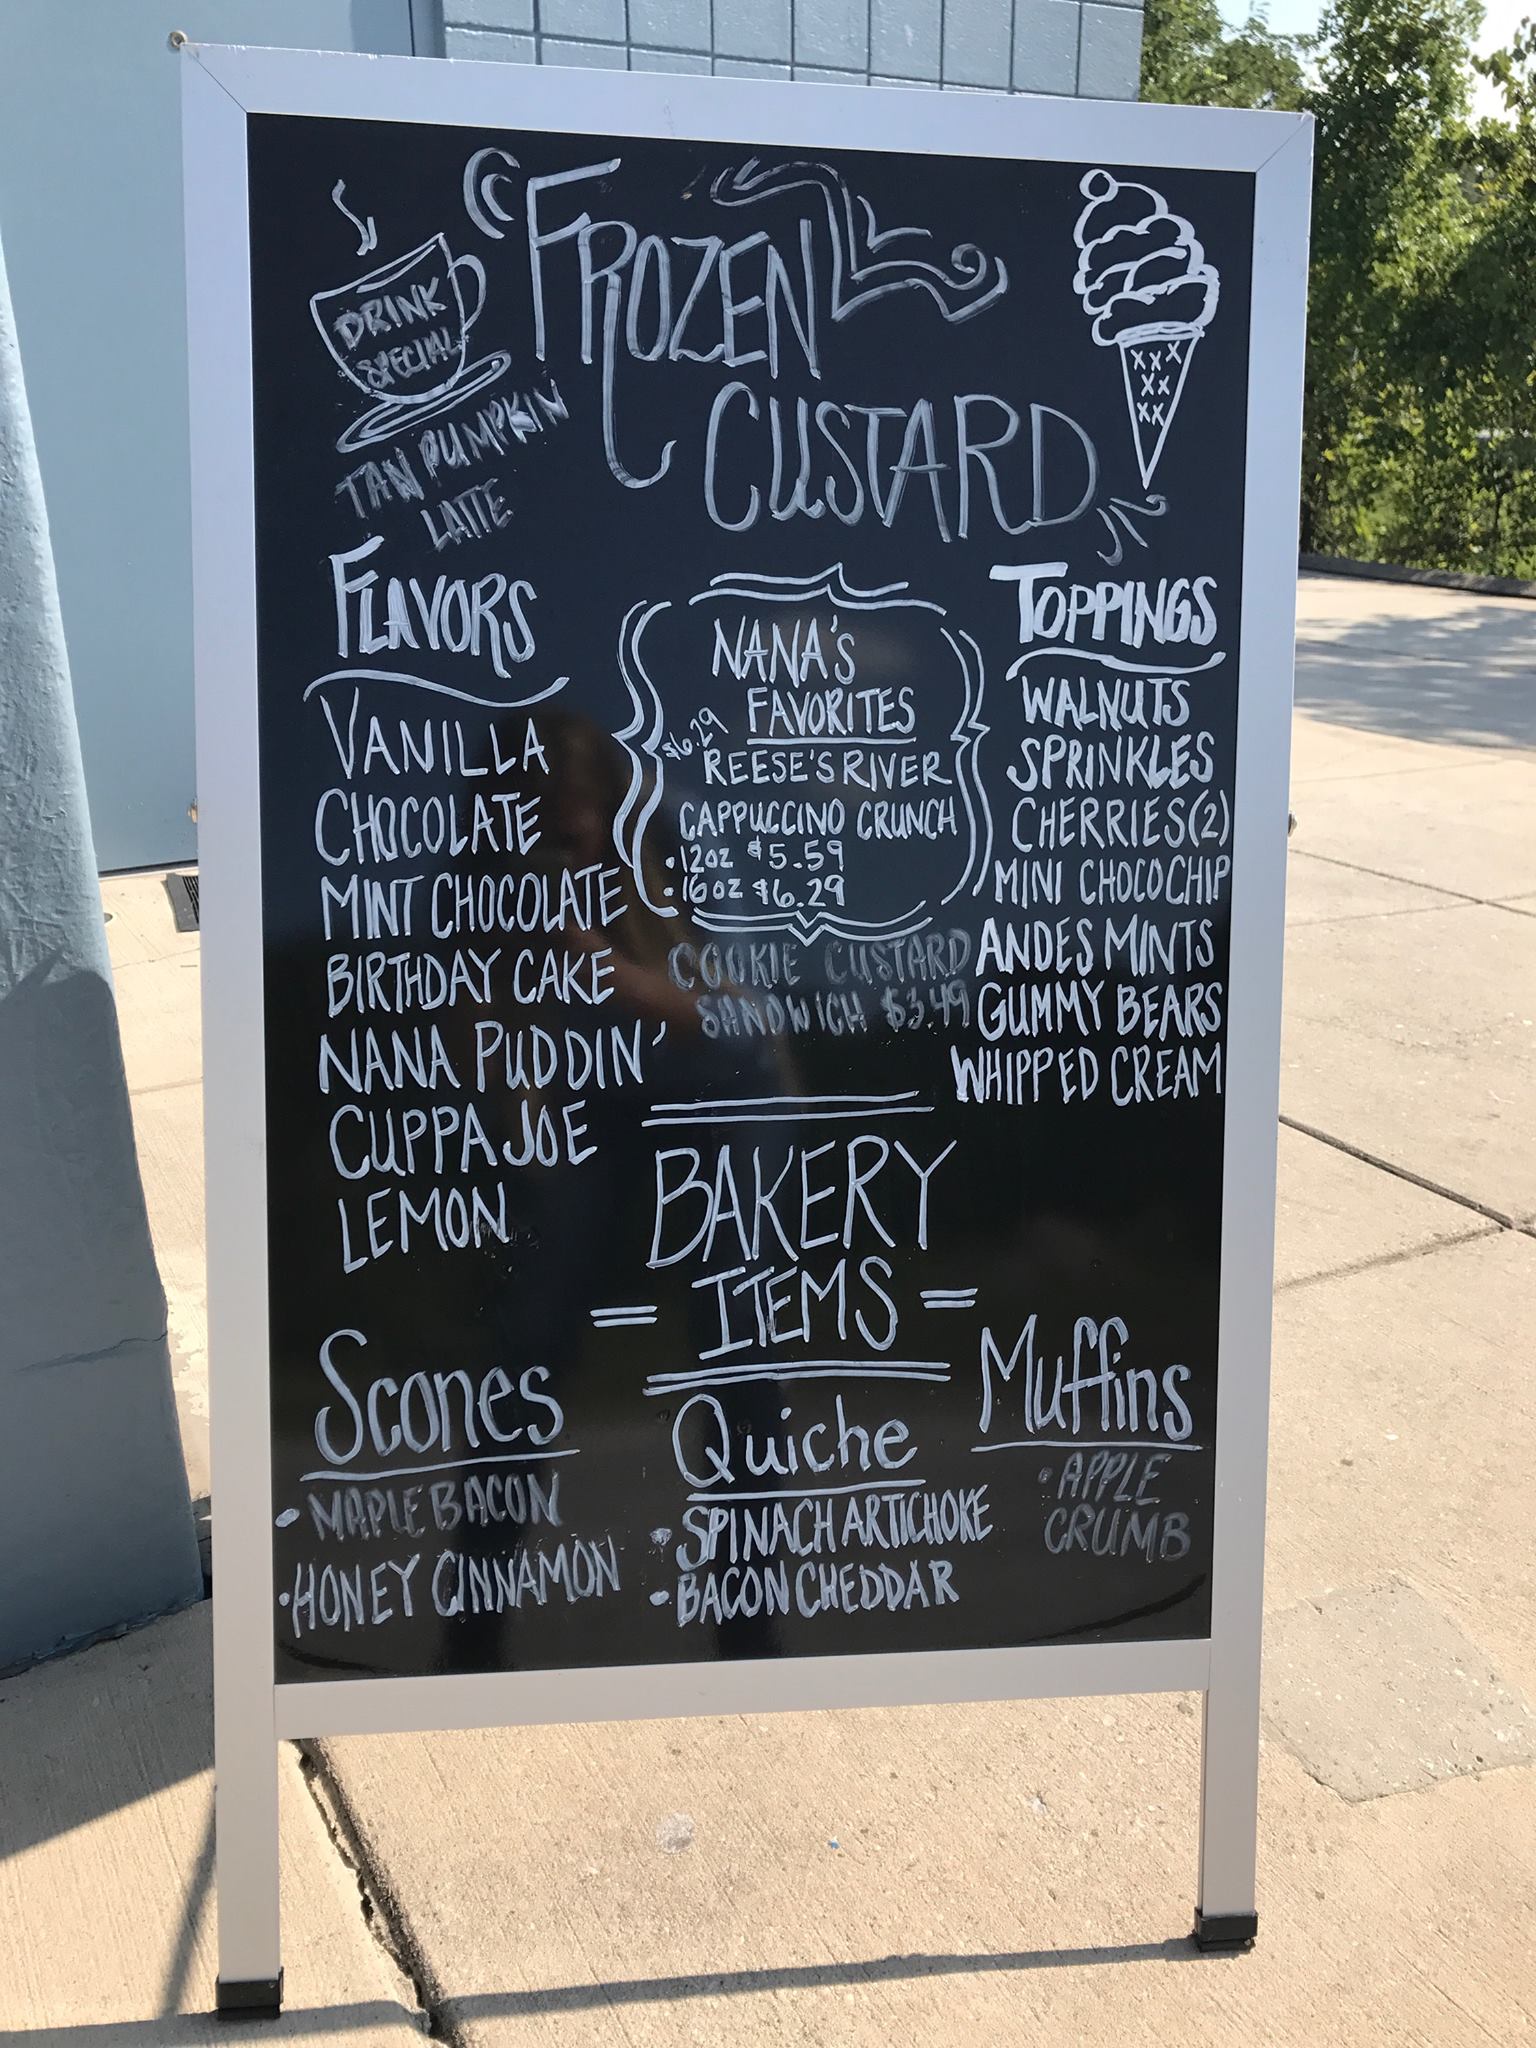 DRINK
SPECIAL
TAN PUMPKIN
LATTE
FROZEN
CUSTARD
FLAVORS
VANILLA
CHOCOLATE
MINT CHOCOLATE
BIRTHDAY CAKE
NANA PUDDIN'
CUPPA JOE
LEMON
NANA'S
FAVORITES
$6.29
REESE'S RIVER
CAPPUCCINO CRUNCH
• 12oz $5.59
• 16oz $6.29
COOKIE CUSTARD
SANDWICH $3.49
TOPPINGS
WALNUTS
SPRINKLES
CHERRIES(2)
MINI CHOCO CHIP
ANDES MINTS
GUMMY BEARS
WHIPPED CREAM
BAKERY
= ITEMS =
Scones
• MAPLE BACON
• HONEY CINNAMON
Quiche
• SPINACH ARTICHOKE
• BACON CHEDDAR
Muffins
• APPLE
CRUMB